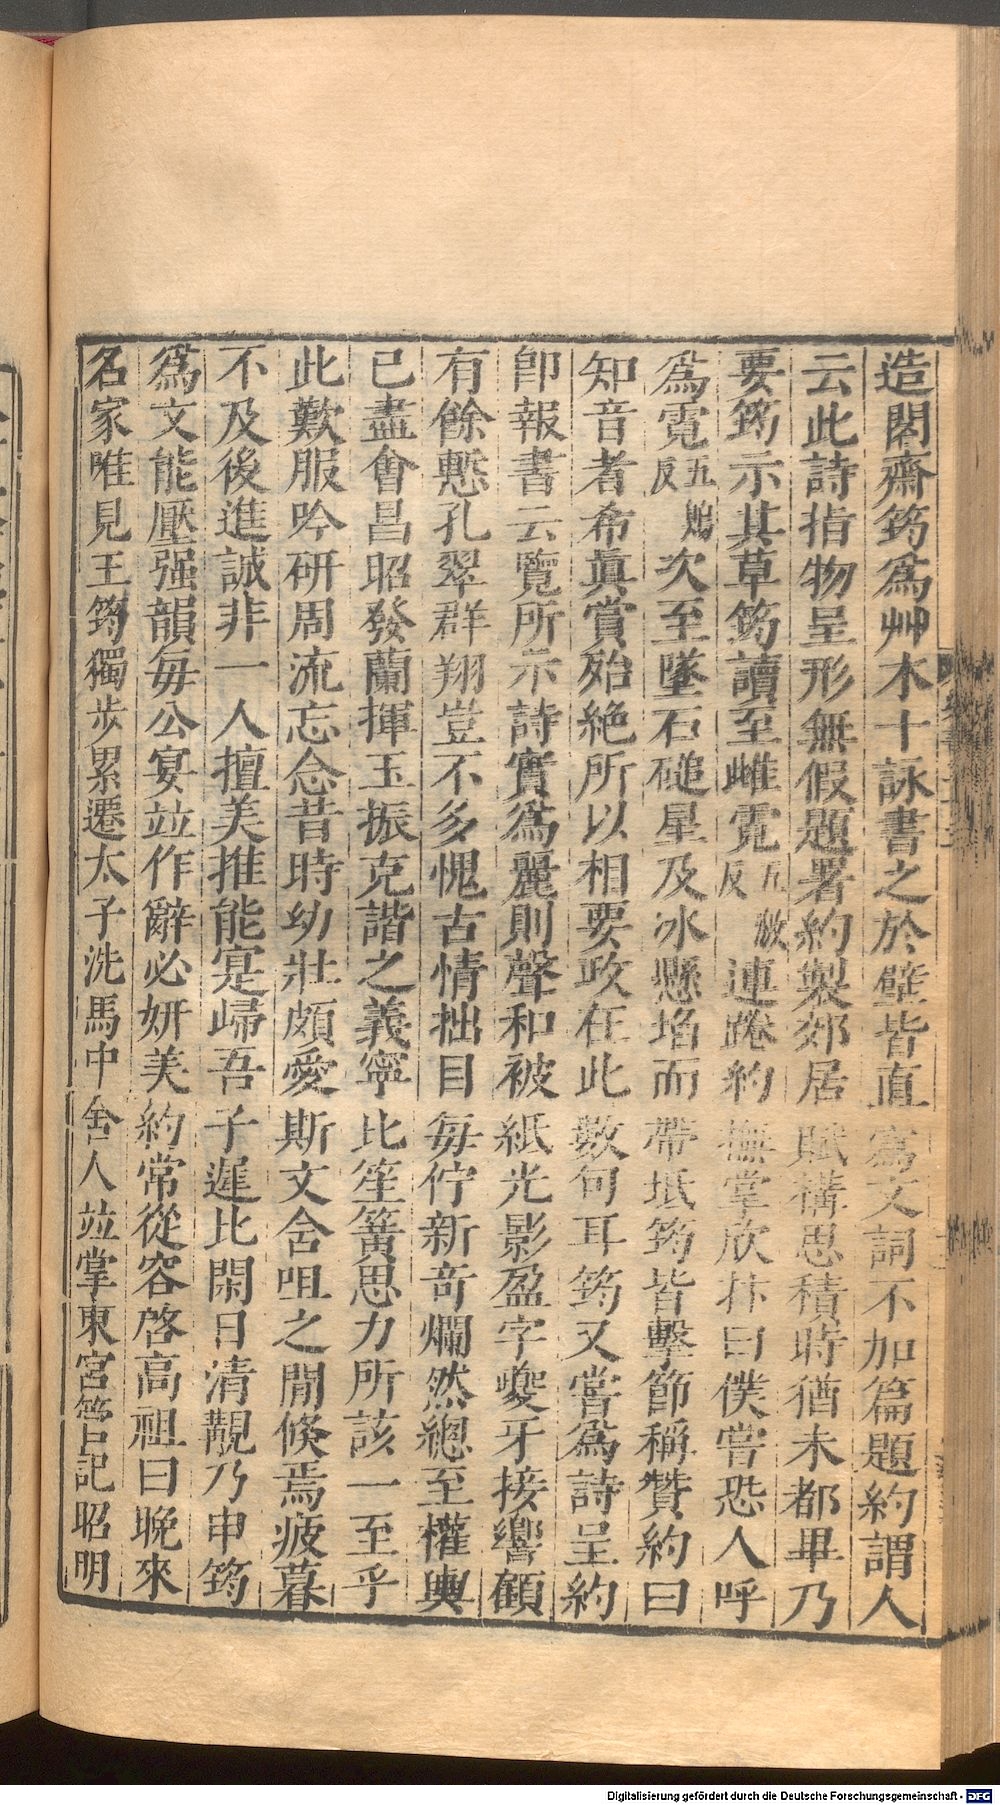 造閣齋筠爲艸木十詠書之於壁皆直寫文詞不加篇題約謂人
云此詩指物呈形無假題署約製郊居賦構思積時猶未都畢乃
要筠示其草筠讀至雌霓五激反連踡約撫掌欣抃曰僕嘗恐人呼
爲霓五鷄反次至墜石磓星及冰懸埳而帶坻筠皆擊節稱贊約曰
知音者希眞賞殆絕所以相要政在此數句耳筠又嘗爲詩呈約
卽報書云覽所示詩實爲麗則聲和被紙光影盈字夔牙接響顧
有餘慙孔翠群翔豈不多愧古情拙目每佇新竒爛然總至權輿
已盡會昌昭發蘭揮玉振克諧之義寧比笙簧思力所該一至乎
此歎服吟研周流忘念昔時幼壯頗愛斯文含咀之閒倏焉疲暮
不及後進誠非一人擅美推能寔歸吾子遲比閑日清覯乃申筠
爲文能壓强韻每公宴竝作辭必妍美約常從容啓高祖曰晚來
名家唯見王筠獨步累遷太子洗馬中舍人竝掌東宮管記昭明
Digitalisierung gefördert durch die Deutsche Forschungsgemeinschaft - DFG